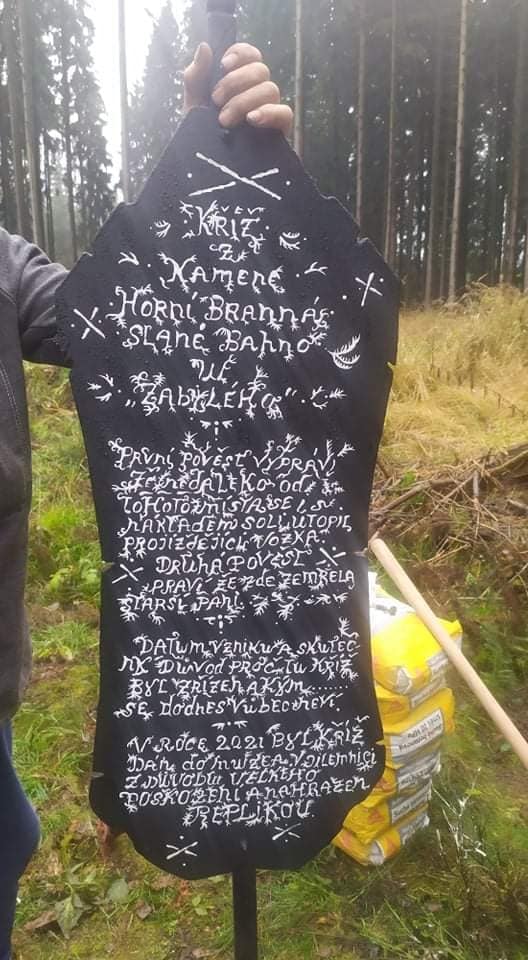 KŘÍŽ
Z
KAMENE
HORNÍ BRANNÁ
SLANÉ BAHNO
U
"ZABYLÉHO"
PRVNÍ POVĚST VYPRÁVÍ
ŽE NEDALEKO OD
TOHOTO MÍSTA SE I S
NÁKLADEM SOLI UTOPIL
PROJÍŽDĚJÍCÍ VOZKA.
DRUHÁ POVĚST
PRAVÍ ŽE ZDE ZEMŘELA
STARŠÍ PANÍ.
DATUM VZNIKU A SKUTEČ
NÝ DŮVOD PROČ TU KŘÍŽ
BYL ZŘÍZEN A KÝM ......
SE DODNES VŮBEC NEVÍ.
V ROCE 2021 BYL KŘÍŽ
DÁN DO MUZEA V JILEMNICI
Z DŮVODU VELKÉHO
POŠKOZENÍ A NAHRAZEN
REPLIKOU